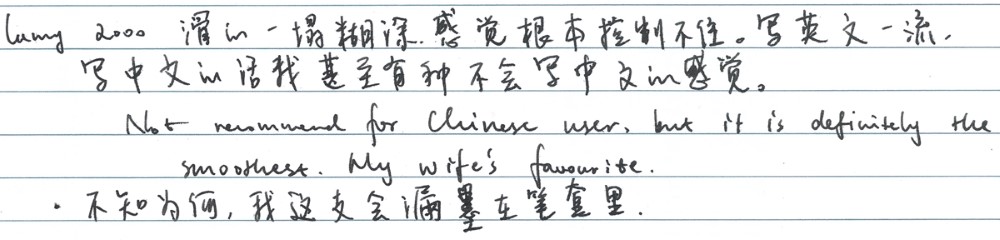 Lamy 2000 滑的一塌糊涂,感觉根本控制不住。写英文一流,
写中文的话我甚至有种不会写中文的感觉。
Not recommend for Chinese user, but it is definitely the
smoothest. My wife's favourite.
· 不知为何,我这支会漏墨在笔套里.